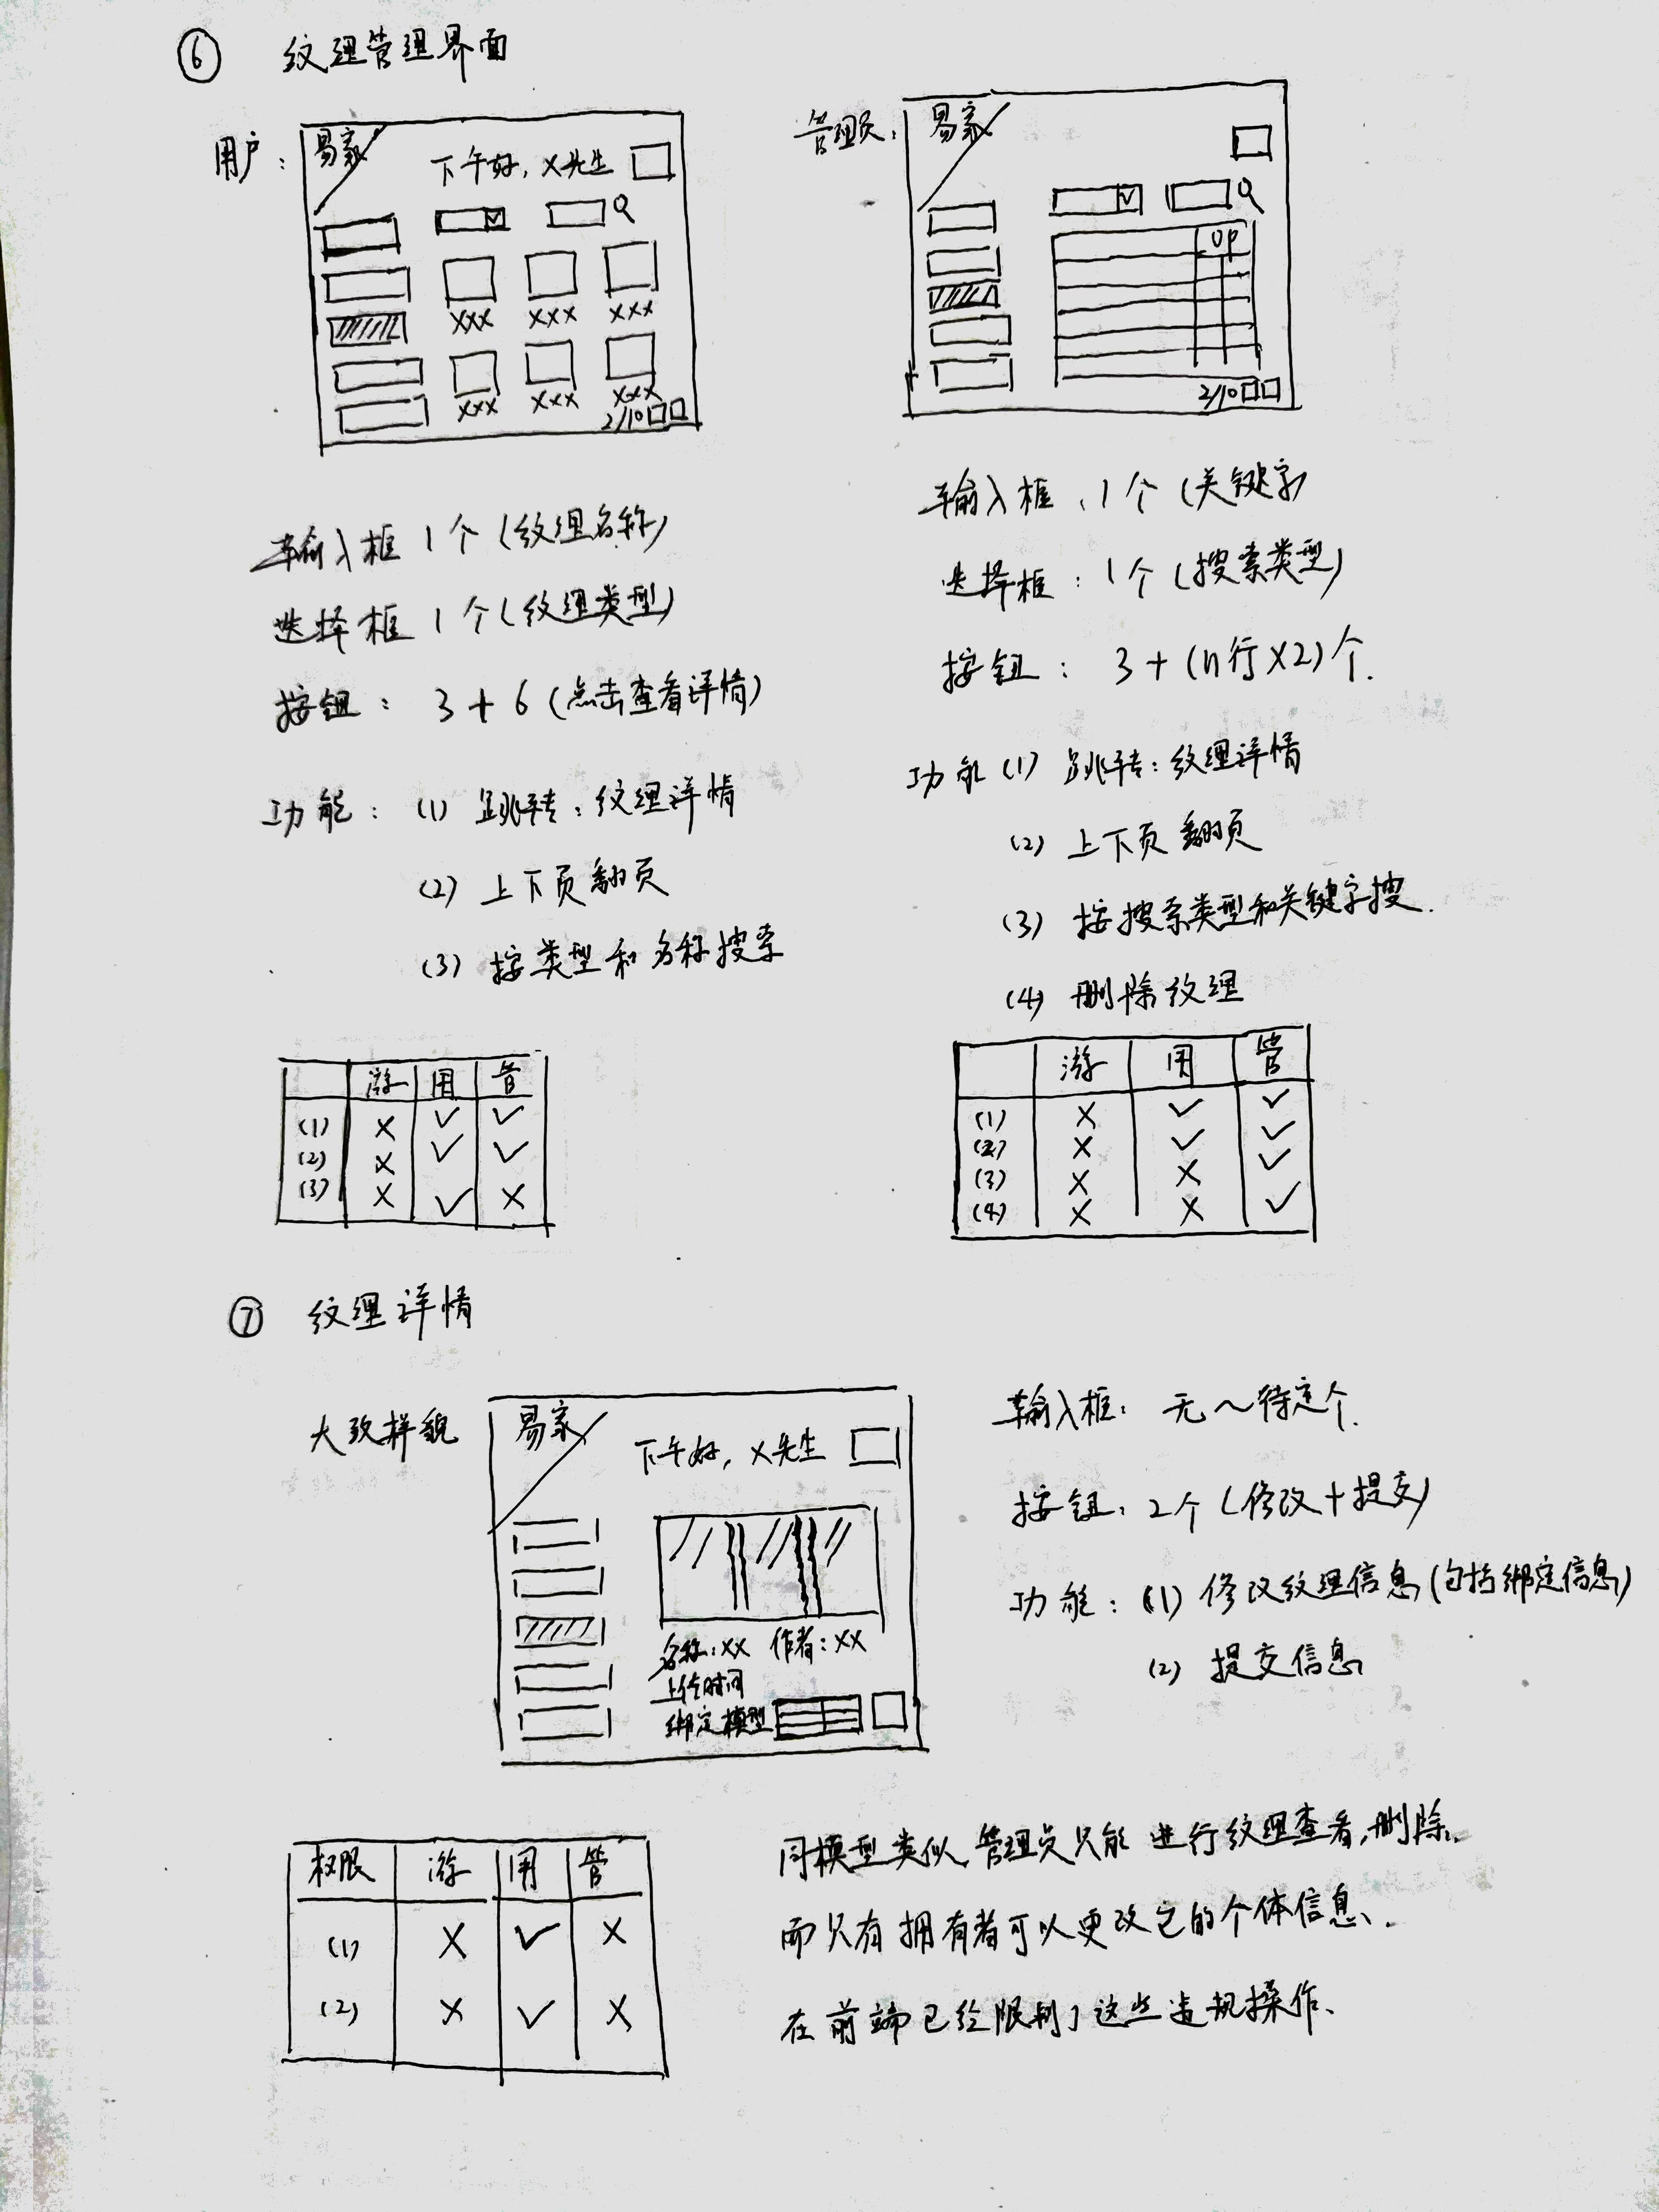 ⑥ 纹理管理界面
用户:
易家
下午好, X先生
XXX XXX XXX
XXX XXX XXX
2/10
管理员:
易家
OP
2/10
输入框 1个(纹理名称)
选择框 1个(纹理类型)
按钮: 3+6(点击查看详情)
功能: (1) 跳转:纹理详情
(2) 上下页翻页
(3) 按类型和名称搜索
输入框、1个(关键字)
选择框: 1个(搜索类型)
按钮: 3+(n行X2)个.
功能(1) 跳转:纹理详情
(2) 上下页翻页
(3) 按搜索类型和关键字搜.
(4) 删除纹理
游 用 管
(1) X ✓ ✓
(2) X ✓ ✓
(3) X ✓ X
游 用 管
(1) X ✓ ✓
(2) X ✓ ✓
(3) X X ✓
(4) X X ✓
⑦ 纹理详情
大致样貌
易家
下午好, X先生
名称:XX 作者:XX
上传时间
绑定模型
输入框: 无~待定个.
按钮: 2个(修改+提交)
功能: (1) 修改纹理信息(包括绑定信息)
(2) 提交信息
权限 游 用 管
(1) X ✓ X
(2) X ✓ X
同模型类似,管理员只能进行纹理查看,删除.
而只有拥有者可以更改它的个体信息.
在前端已经限制了这些违规操作.